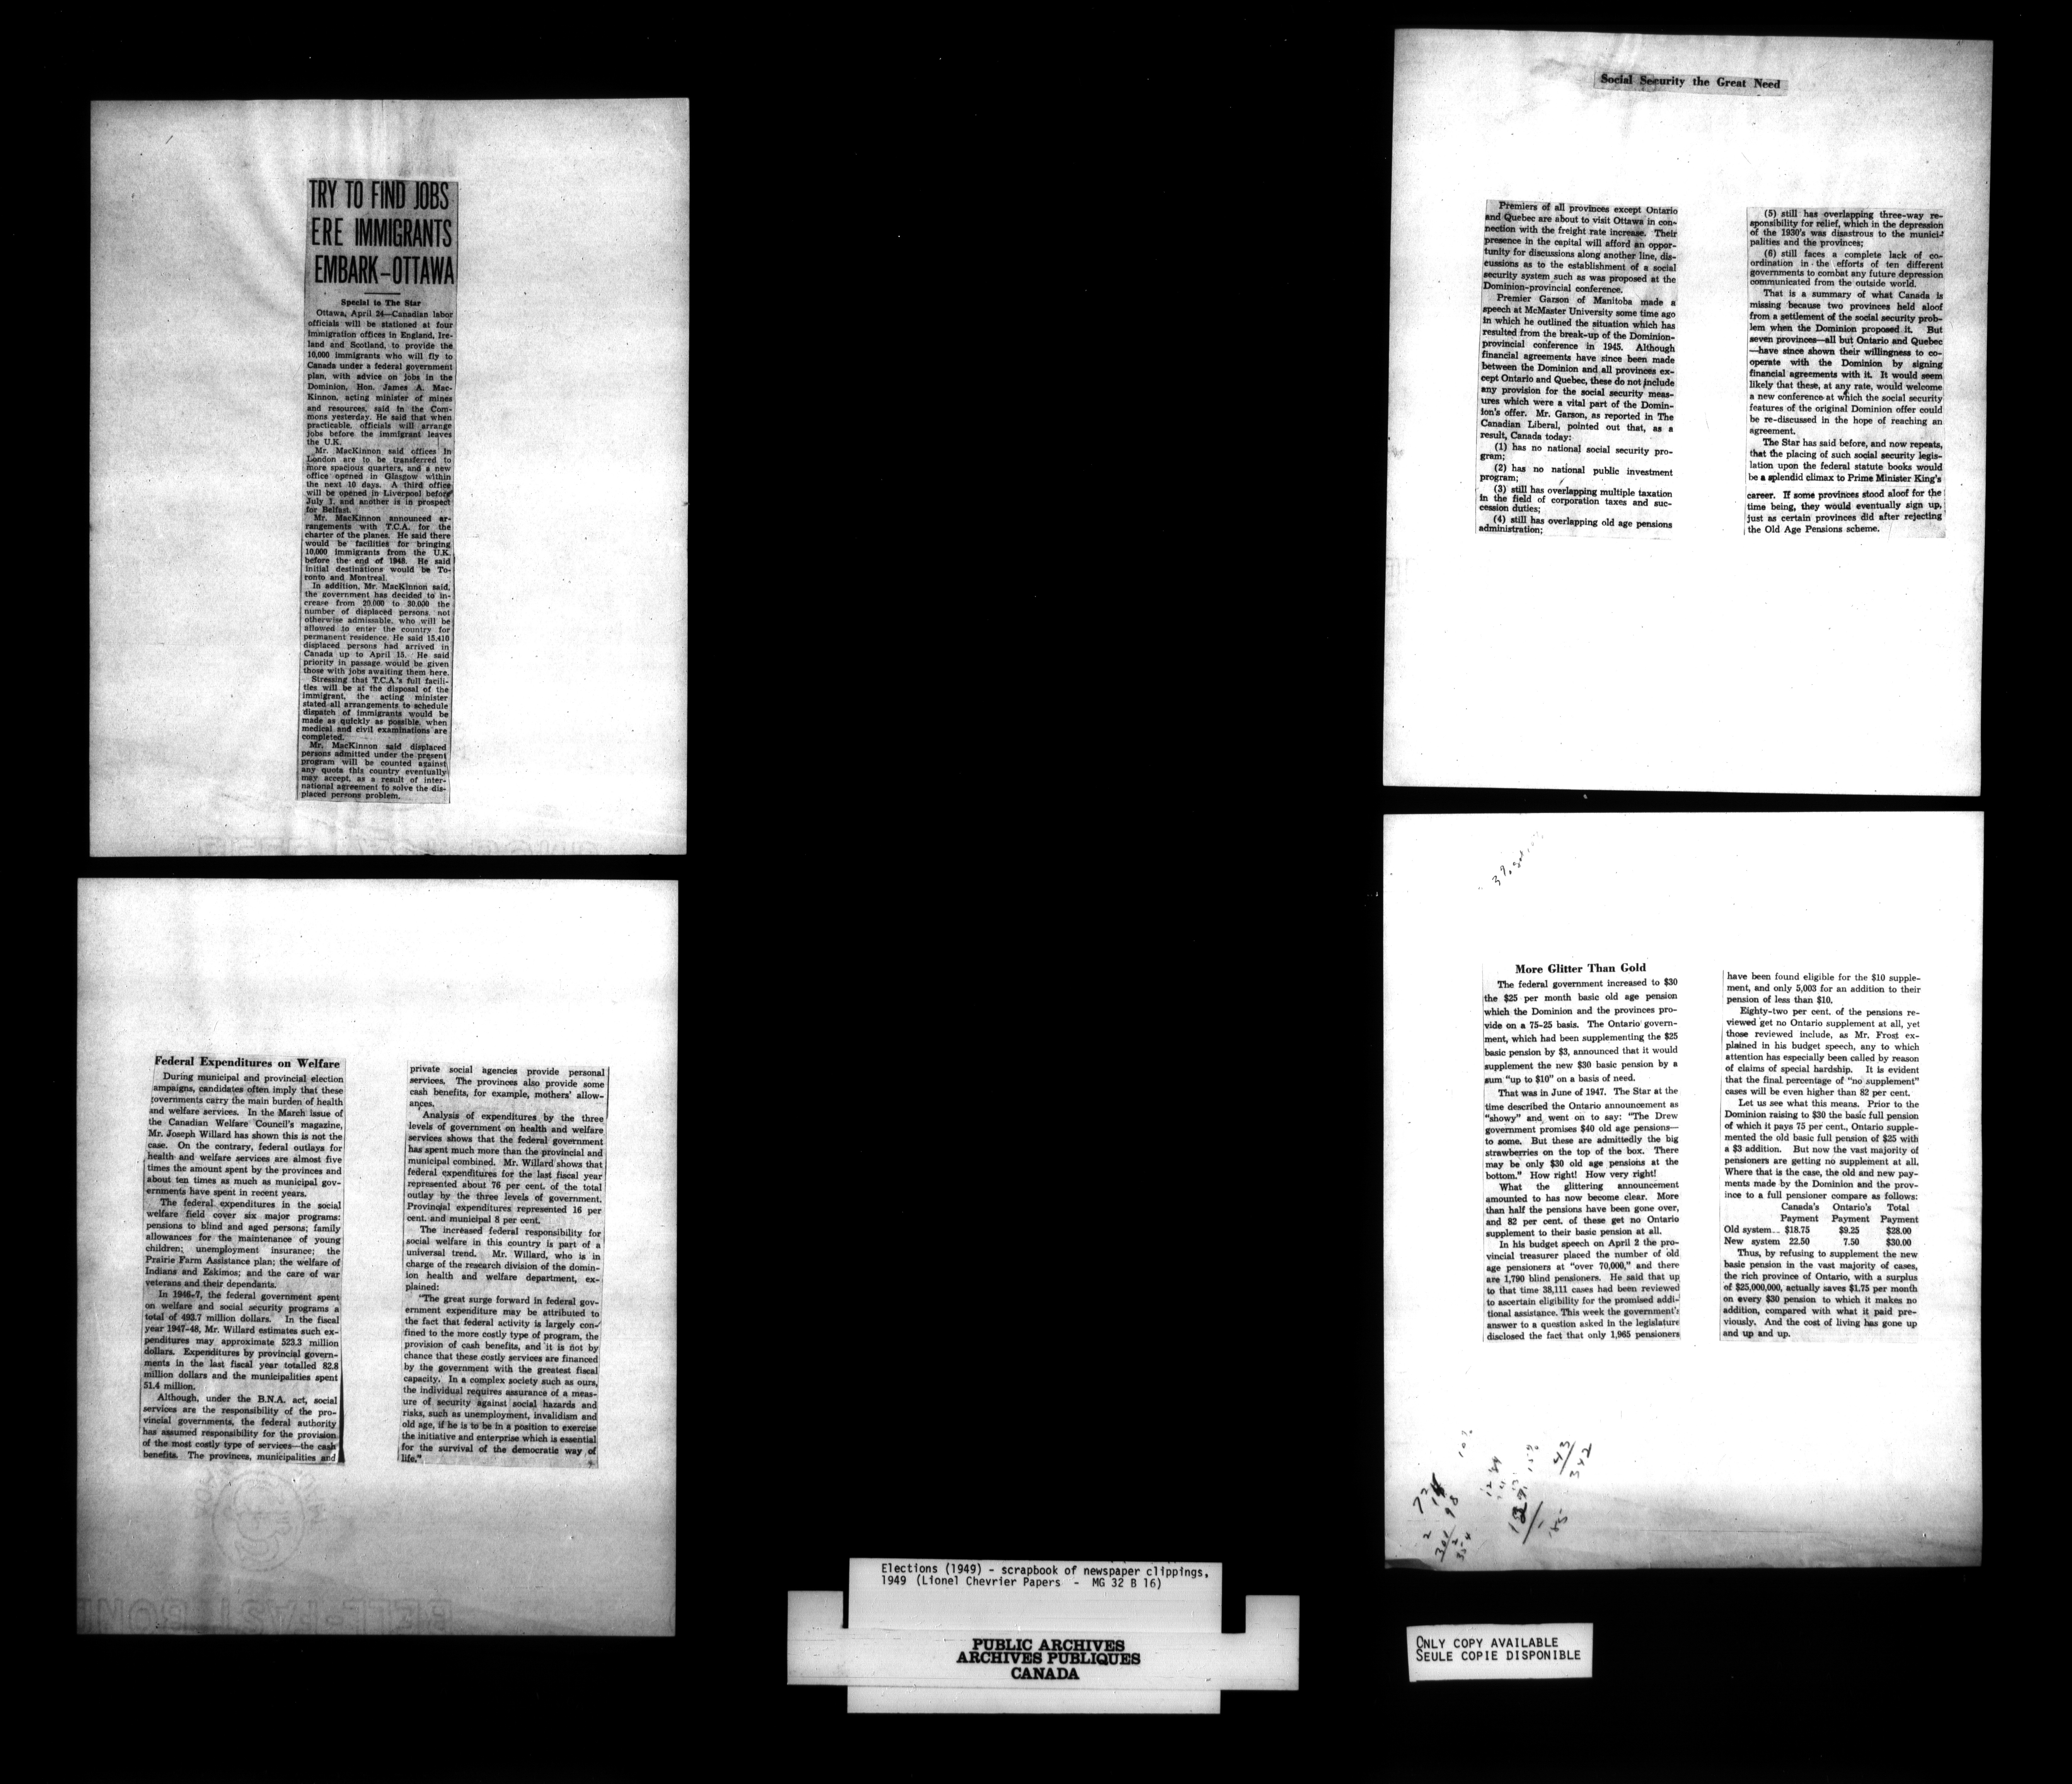 TRY TO FIND JOBS
ERE IMMIGRANTS
EMBARK—OTTAWA
Special to The Star
Ottawa, April 24—Canadian labor
officials will be stationed at four
immigration offices in England, Ire-
land and Scotland, to provide the
10,000 immigrants who will fly to
Canada under a federal government
plan, with advice on jobs in the
Dominion, Hon. James A. Mac-
Kinnon, acting minister of mines
and resources, said in the Com-
mons yesterday. He said that when
practicable, officials will arrange
jobs before the immigrant leaves
the U.K.
Mr. MacKinnon said offices in
London are to be transferred to
more spacious quarters, and a new
office opened in Glasgow within
the next 10 days. A third office
will be opened in Liverpool before
July 1, and another is in prospect
for Belfast.
Mr. MacKinnon announced ar-
rangements with T.C.A. for the
charter of the planes. He said there
would be facilities for bringing
10,000 immigrants from the U.K.
before the end of 1948. He said
initial destinations would be To-
ronto and Montreal.
In addition, Mr. MacKinnon said,
the government has decided to in-
crease from 20,000 to 30,000 the
number of displaced persons, not
otherwise admissable, who will be
allowed to enter the country for
permanent residence. He said 15,410
displaced persons had arrived in
Canada up to April 15. He said
priority in passage would be given
those with jobs awaiting them here.
Stressing that T.C.A.'s full facili-
ties will be at the disposal of the
immigrant, the acting minister
stated all arrangements to schedule
dispatch of immigrants would be
made as quickly as possible, when
medical and civil examinations are
completed.
Mr. MacKinnon said displaced
persons admitted under the present
program will be counted against
any quota this country eventually
may accept, as a result of inter-
national agreement to solve the dis-
placed persons problem.
Federal Expenditures on Welfare
During municipal and provincial election
ampaigns, candidates often imply that these
governments carry the main burden of health
and welfare services. In the March issue of
the Canadian Welfare Council's magazine,
Mr. Joseph Willard has shown this is not the
case. On the contrary, federal outlays for
health and welfare services are almost five
times the amount spent by the provinces and
about ten times as much as municipal gov-
ernments have spent in recent years.
The federal expenditures in the social
welfare field cover six major programs:
pensions to blind and aged persons; family
allowances for the maintenance of young
children; unemployment insurance; the
Prairie Farm Assistance plan; the welfare of
Indians and Eskimos; and the care of war
veterans and their dependants.
In 1946-7, the federal government spent
on welfare and social security programs a
total of 493.7 million dollars. In the fiscal
year 1947-48, Mr. Willard estimates such ex-
penditures may approximate 523.3 million
dollars. Expenditures by provincial govern-
ments in the last fiscal year totalled 82.8
million dollars and the municipalities spent
51.4 million.
Although, under the B.N.A. act, social
services are the responsibility of the pro-
vincial governments, the federal authority
has assumed responsibility for the provision
of the most costly type of services—the cash
benefits. The provinces, municipalities and
private social agencies provide personal
services. The provinces also provide some
cash benefits, for example, mothers' allow-
ances.
Analysis of expenditures by the three
levels of government on health and welfare
services shows that the federal government
has spent much more than the provincial and
municipal combined. Mr. Willard shows that
federal expenditures for the last fiscal year
represented about 76 per cent. of the total
outlay by the three levels of government.
Provincial expenditures represented 16 per
cent. and municipal 8 per cent.
The increased federal responsibility for
social welfare in this country is part of a
universal trend. Mr. Willard, who is in
charge of the research division of the domin-
ion health and welfare department, ex-
plained:
"The great surge forward in federal gov-
ernment expenditure may be attributed to
the fact that federal activity is largely con-
fined to the more costly type of program, the
provision of cash benefits, and it is not by
chance that these costly services are financed
by the government with the greatest fiscal
capacity. In a complex society such as ours,
the individual requires assurance of a meas-
ure of security against social hazards and
risks, such as unemployment, invalidism and
old age, if he is to be in a position to exercise
the initiative and enterprise which is essential
for the survival of the democratic way of
life."
Social Security the Great Need
Premiers of all provinces except Ontario
and Quebec are about to visit Ottawa in con-
nection with the freight rate increase. Their
presence in the capital will afford an oppor-
tunity for discussions along another line, dis-
cussions as to the establishment of a social
security system such as was proposed at the
Dominion-provincial conference.
Premier Garson of Manitoba made a
speech at McMaster University some time ago
in which he outlined the situation which has
resulted from the break-up of the Dominion-
provincial conference in 1945. Although
financial agreements have since been made
between the Dominion and all provinces ex-
cept Ontario and Quebec, these do not include
any provision for the social security meas-
ures which were a vital part of the Domin-
ion's offer. Mr. Garson, as reported in The
Canadian Liberal, pointed out that, as a
result, Canada today:
(1) has no national social security pro-
gram;
(2) has no national public investment
program;
(3) still has overlapping multiple taxation
in the field of corporation taxes and suc-
cession duties;
(4) still has overlapping old age pensions
administration;
(5) still has overlapping three-way re-
sponsibility for relief, which in the depression
of the 1930's was disastrous to the munici-
palities and the provinces;
(6) still faces a complete lack of co-
ordination in the efforts of ten different
governments to combat any future depression
communicated from the outside world.
That is a summary of what Canada is
missing because two provinces held aloof
from a settlement of the social security prob-
lem when the Dominion proposed it. But
seven provinces—all but Ontario and Quebec
—have since shown their willingness to co-
operate with the Dominion by signing
financial agreements with it. It would seem
likely that these, at any rate, would welcome
a new conference at which the social security
features of the original Dominion offer could
be re-discussed in the hope of reaching an
agreement.
The Star has said before, and now repeats,
that the placing of such social security legis-
lation upon the federal statute books would
be a splendid climax to Prime Minister King's
career. If some provinces stood aloof for the
time being, they would eventually sign up,
just as certain provinces did after rejecting
the Old Age Pensions scheme.
More Glitter Than Gold
The federal government increased to $30
the $25 per month basic old age pension
which the Dominion and the provinces pro-
vide on a 75-25 basis. The Ontario govern-
ment, which had been supplementing the $25
basic pension by $3, announced that it would
supplement the new $30 basic pension by a
sum "up to $10" on a basis of need.
That was in June of 1947. The Star at the
time described the Ontario announcement as
"showy" and went on to say: "The Drew
government promises $40 old age pensions—
to some. But these are admittedly the big
strawberries on the top of the box. There
may be only $30 old age pensions at the
bottom." How right! How very right!
What the glittering announcement
amounted to has now become clear. More
than half the pensions have been gone over,
and 82 per cent. of these get no Ontario
supplement to their basic pension at all.
In his budget speech on April 2 the pro-
vincial treasurer placed the number of old
age pensioners at "over 70,000," and there
are 1,790 blind pensioners. He said that up
to that time 38,111 cases had been reviewed
to ascertain eligibility for the promised addi-
tional assistance. This week the government's
answer to a question asked in the legislature
disclosed the fact that only 1,965 pensioners
have been found eligible for the $10 supple-
ment, and only 5,003 for an addition to their
pension of less than $10.
Eighty-two per cent. of the pensions re-
viewed get no Ontario supplement at all, yet
those reviewed include, as Mr. Frost ex-
plained in his budget speech, any to which
attention has especially been called by reason
of claims of special hardship. It is evident
that the final percentage of "no supplement"
cases will be even higher than 82 per cent.
Let us see what this means. Prior to the
Dominion raising to $30 the basic full pension
of which it pays 75 per cent., Ontario supple-
mented the old basic full pension of $25 with
a $3 addition. But now the vast majority of
pensioners are getting no supplement at all.
Where that is the case, the old and new pay-
ments made by the Dominion and the prov-
ince to a full pensioner compare as follows:
Canada's Ontario's Total
Payment Payment Payment
Old system.. $18.75 $9.25 $28.00
New system 22.50 7.50 $30.00
Thus, by refusing to supplement the new
basic pension in the vast majority of cases,
the rich province of Ontario, with a surplus
of $25,000,000, actually saves $1.75 per month
on every $30 pension to which it makes no
addition, compared with what it paid pre-
viously. And the cost of living has gone up
and up and up.
Elections (1949) - scrapbook of newspaper clippings,
1949 (Lionel Chevrier Papers - MG 32 B 16)
PUBLIC ARCHIVES
ARCHIVES PUBLIQUES
CANADA
ONLY COPY AVAILABLE
SEULE COPIE DISPONIBLE